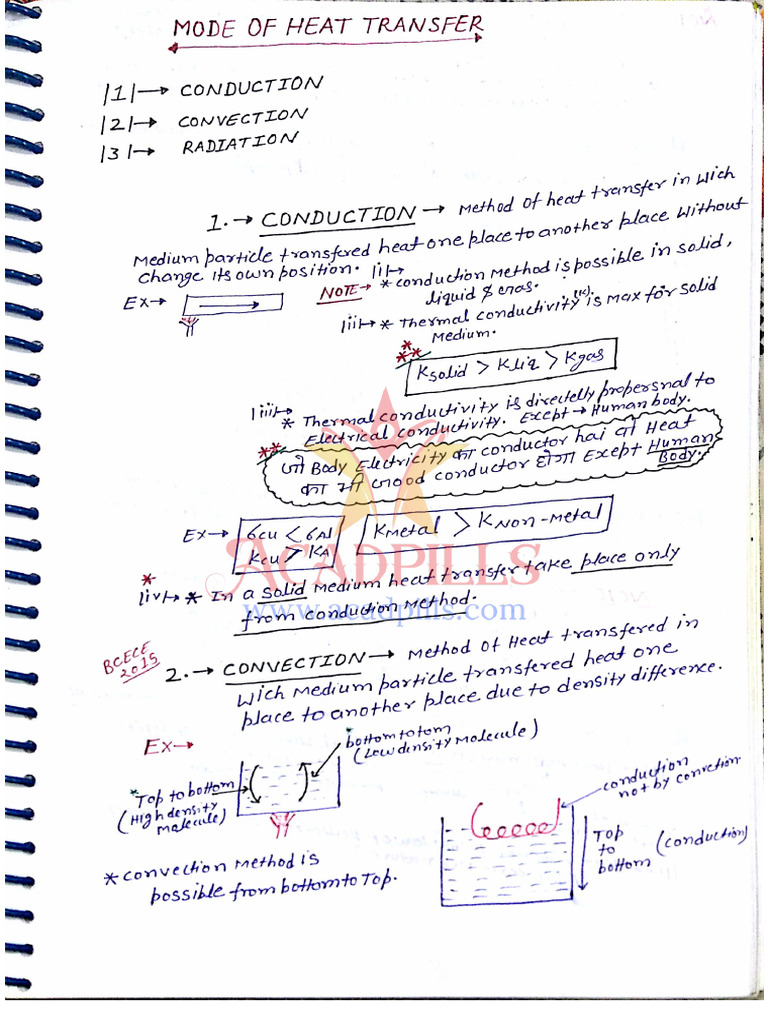 MODE OF HEAT TRANSFER
|1|→ CONDUCTION
|2|→ CONVECTION
|3|→ RADIATION
1.→ CONDUCTION → Method of heat transfer in wich
Medium particle transfered heat one place to another place without
change its own position.
Ex→
NOTE→ |i|→ * conduction Method is possible in solid,
liquid & Gas.
|ii|→ * Thermal conductivity (K) is max for solid
Medium.
Ksolid > Kliq > Kgas
|iii|→ * Thermal conductivity is directelly propersnal to
Electrical conductivity. Except → Human body.
** जो Body Electricity का conductor hai वो Heat
का भी Good conductor होगा Except Human
Body.
Ex→ σcu < σAl
Kcu > KA
Kmetal > KNon-metal
ACADPILLS
www.acadpills.com
* |iv|→ * In a solid Medium heat transfer take place only
from conduction Method.
BCECE
2015
2.→ CONVECTION → Method of Heat transfered in
wich Medium particle transfered heat one
place to another place due to density difference.
Ex→
* bottom to tom
(Low density Molecule)
* Top to bottom
(High density
Molecule)
conduction
not by convction
Top
to
bottom
(conduction)
* convection Method is
possible from bottom to Top.